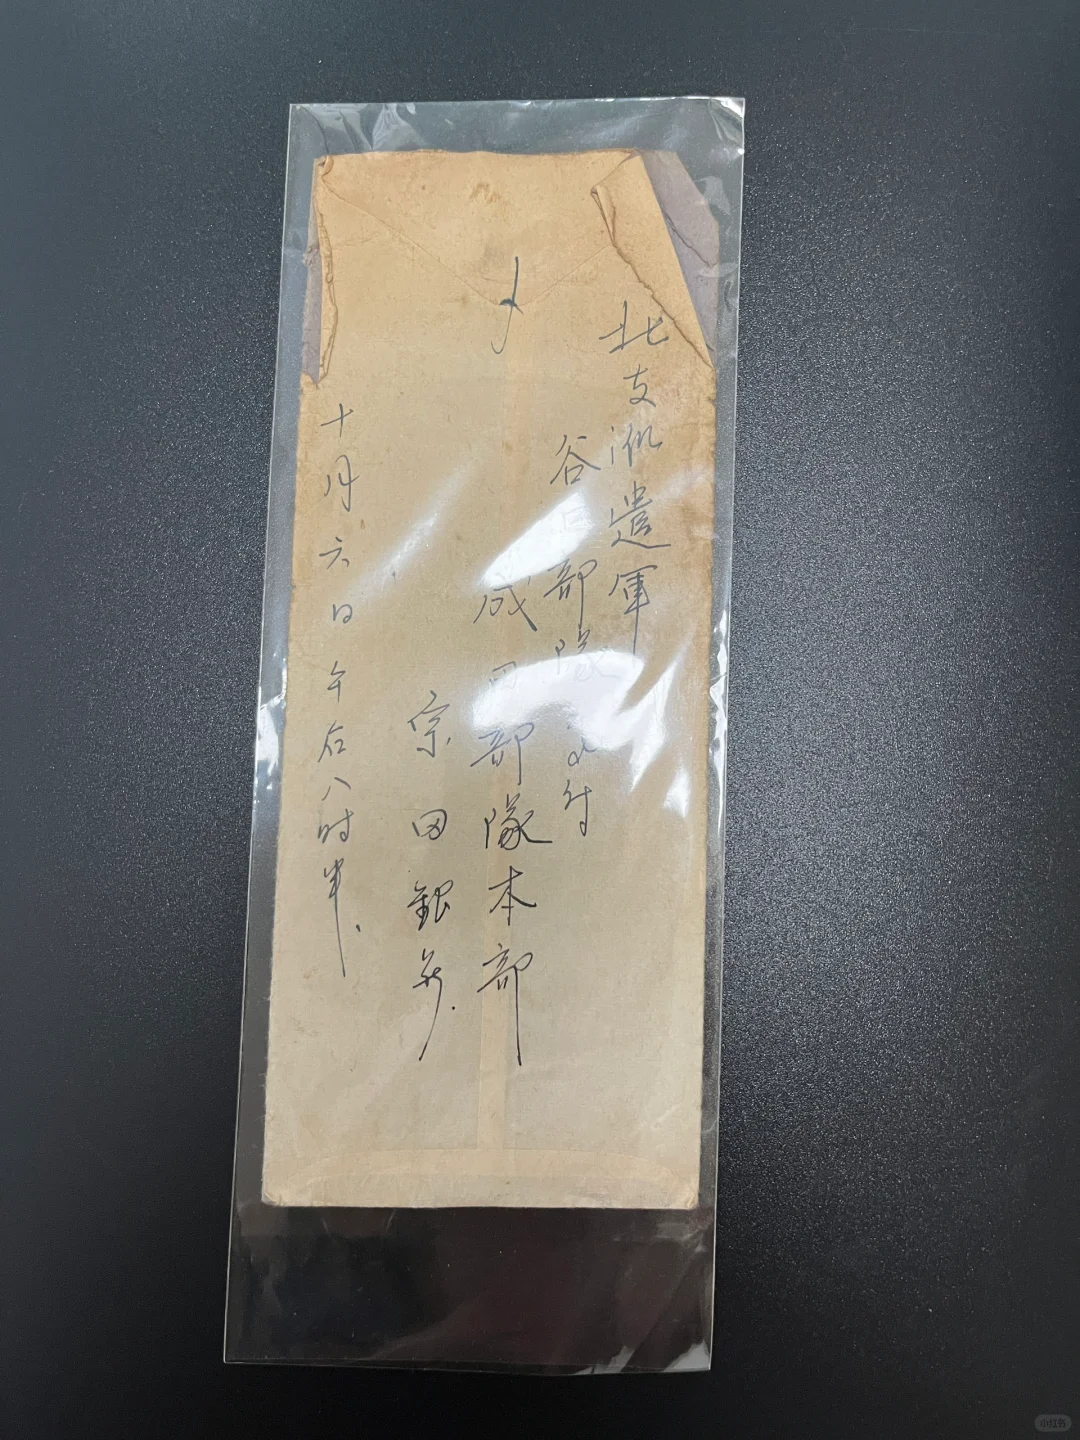 〆
北支派遣軍
谷口部隊気付
成田部隊本部
宗田銀
十月六日午后八时半、
小红书